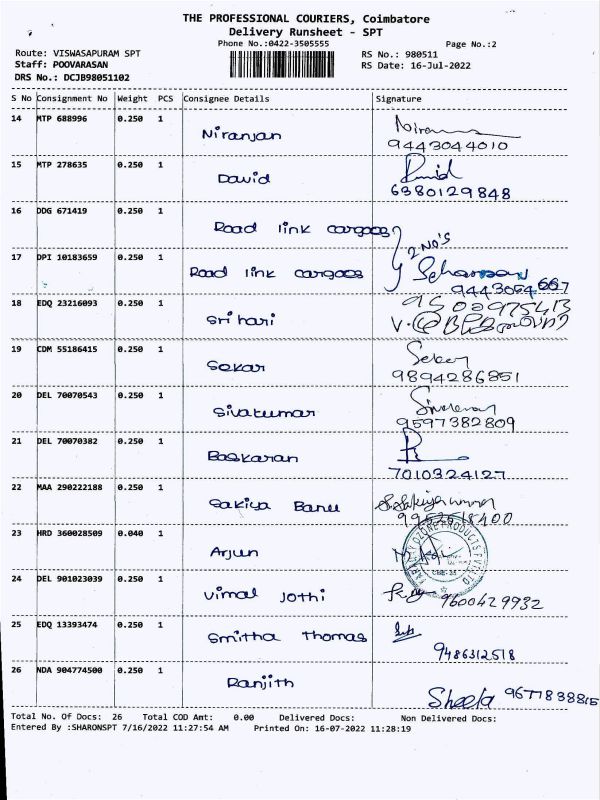 THE PROFESSIONAL COURIERS, Coimbatore
Delivery Runsheet - SPT
Phone No.:0422-3505555
Page No.:2
Route: VISWASAPURAM SPT
RS No.: 980511
Staff: POOVARASAN
RS Date: 16-Jul-2022
DRS No.: DCJB98051102
S No Consignment No Weight PCS Consignee Details Signature
14 MTP 688996 0.250 1 Niranjan
9443044010
15 MTP 278635 0.250 1 David
6380129848
16 DDG 671419 0.250 1 Road link cargoes
2 NO'S
17 DPI 10183659 0.250 1 Road link cargoes
9443054667
18 EDQ 23216093 0.250 1 Sri hari
9500975413
19 CDM 55186415 0.250 1 Sekar Seker
9894286851
20 DEL 70070543 0.250 1 Sivakumar
9597382809
21 DEL 70070382 0.250 1 Baskaran
7010324127
22 MAA 290222188 0.250 1 Sakiya Banu
23 HRD 360028509 0.040 1 Arjun
24 DEL 901023039 0.250 1 Vimal Jothi
9600429932
25 EDQ 13393474 0.250 1 Smitha Thomas
9486312518
26 NDA 904774500 0.250 1 Ranjith
Sheela 9677838815
Total No. Of Docs: 26 Total COD Amt: 0.00 Delivered Docs: Non Delivered Docs:
Entered By :SHARONSPT 7/16/2022 11:27:54 AM Printed On: 16-07-2022 11:28:19